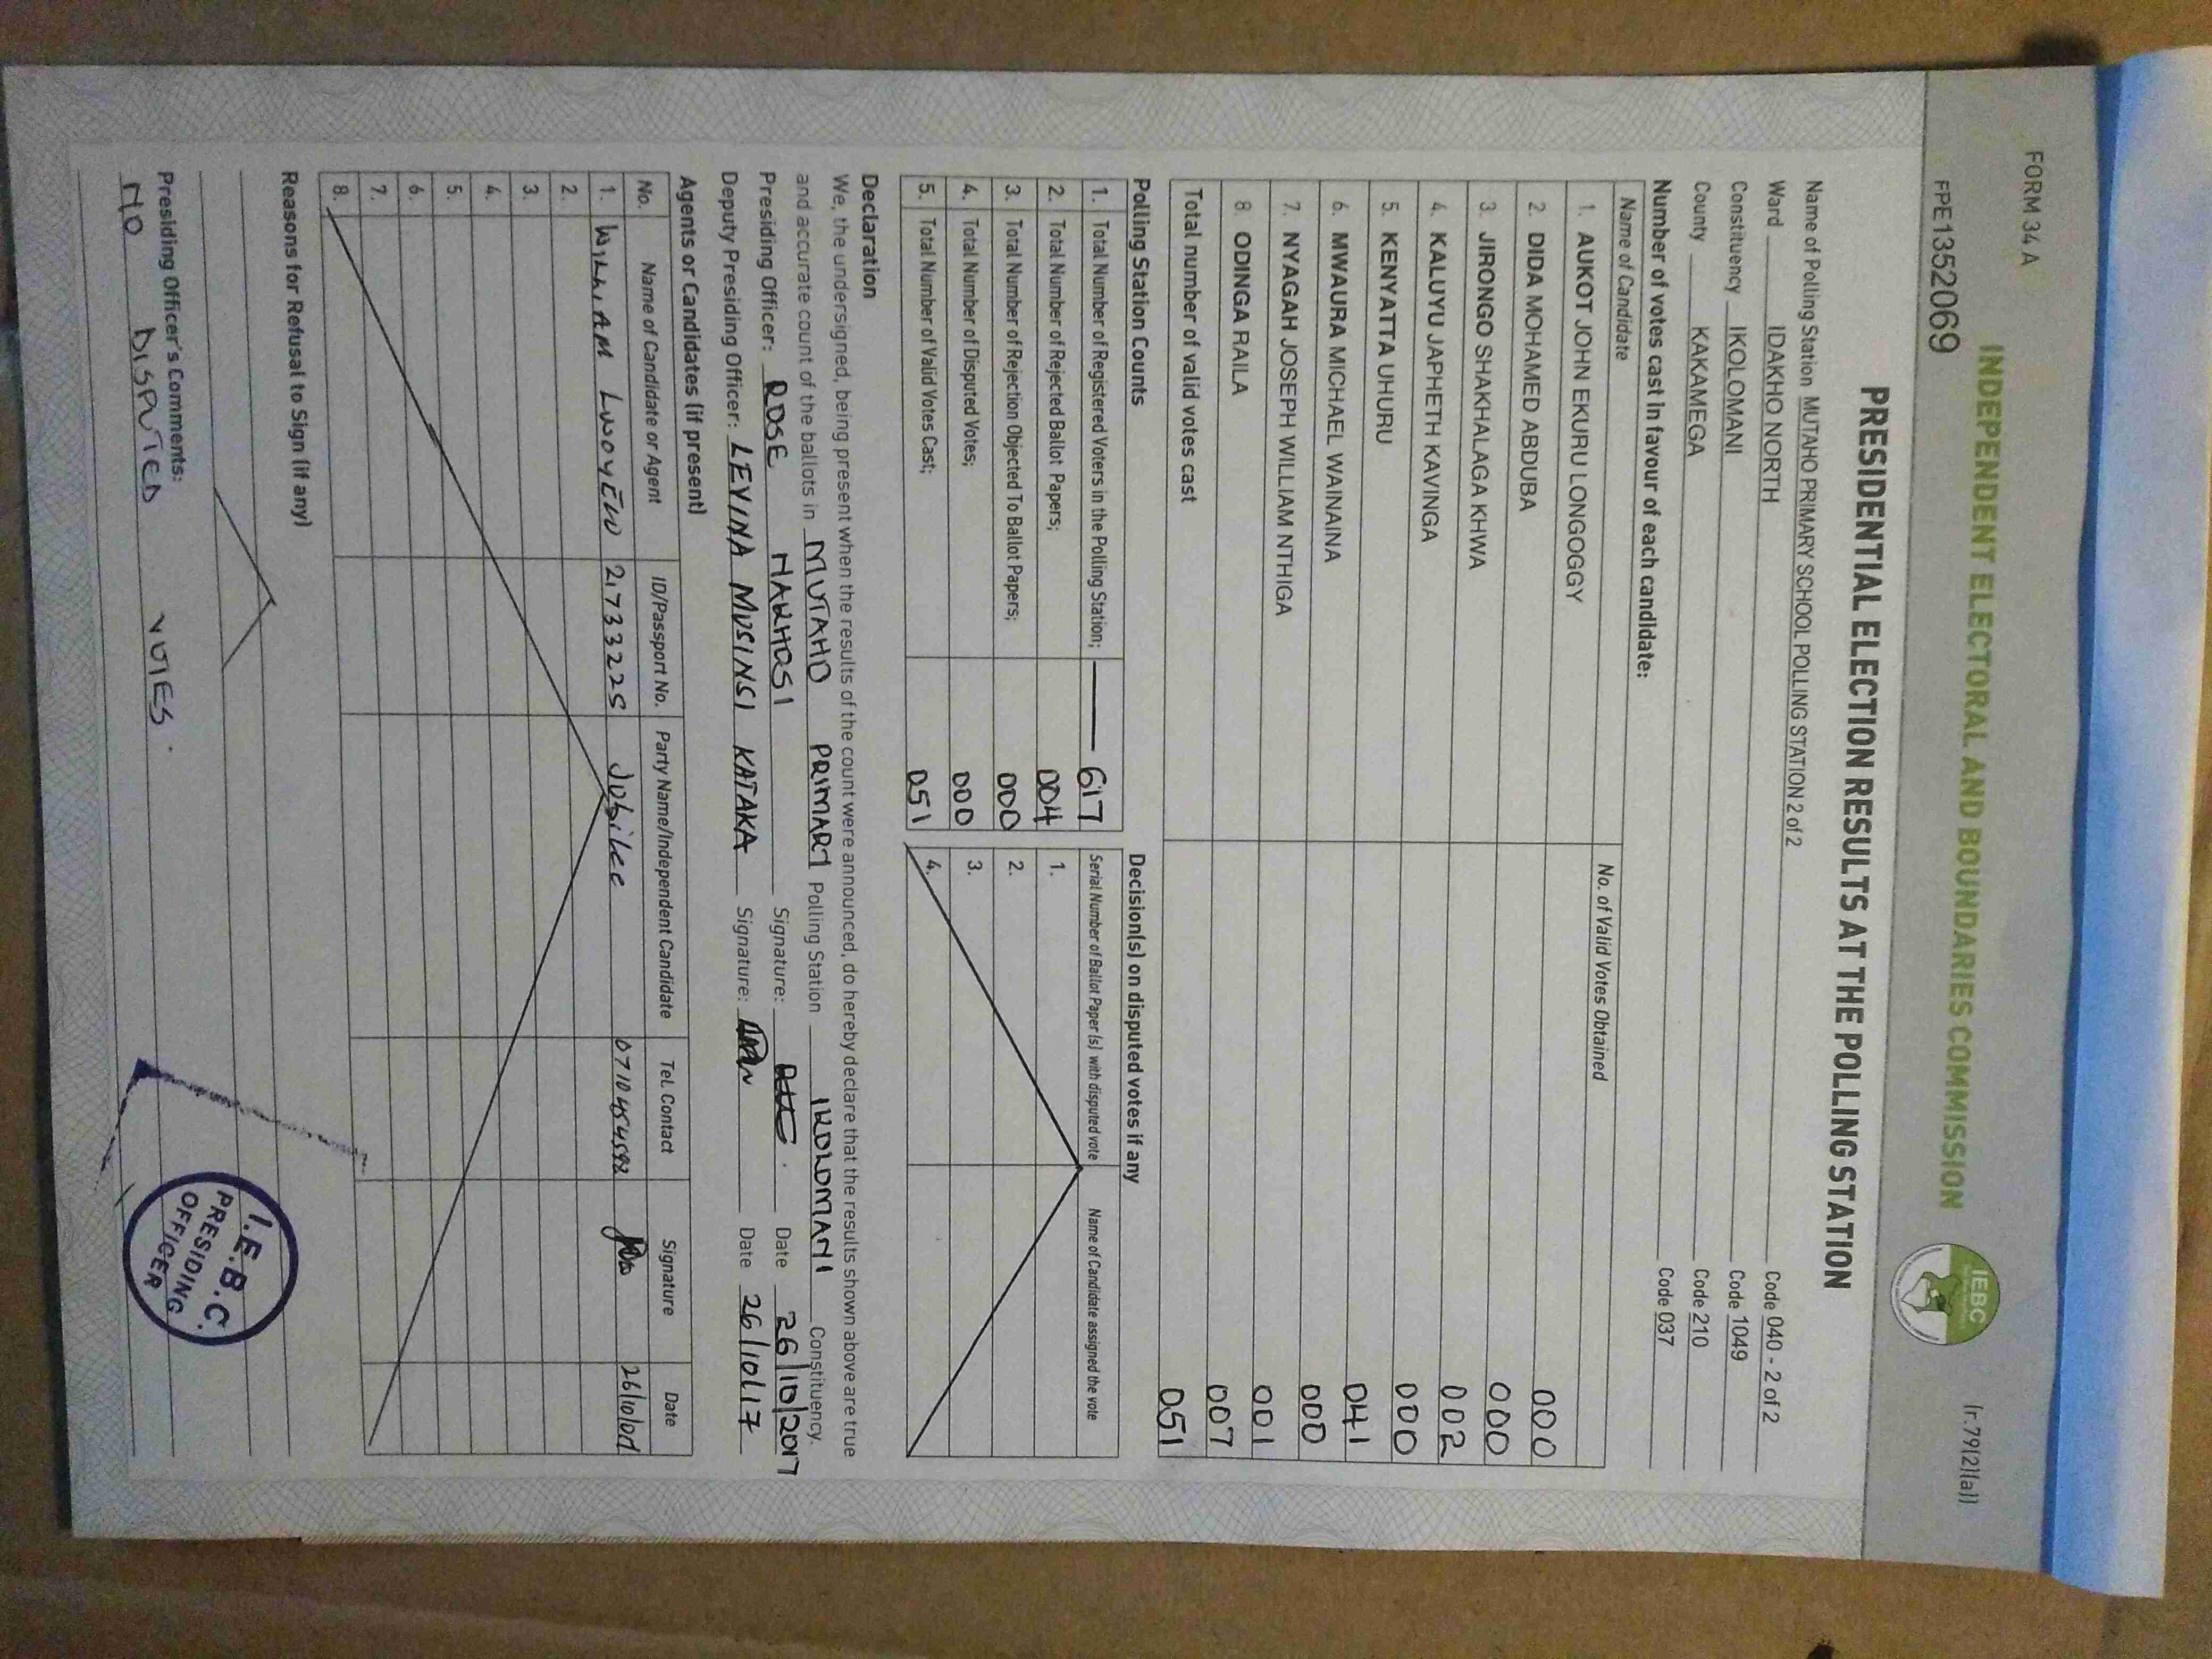 FORM 34 A
(r.79(2)(a))
INDEPENDENT ELECTORAL AND BOUNDARIES COMMISSION
IEBC
FPE1352069
PRESIDENTIAL ELECTION RESULTS AT THE POLLING STATION
Name of Polling Station MUTAHO PRIMARY SCHOOL POLLING STATION 2 of 2 Code 040 - 2 of 2
Ward IDAKHO NORTH Code 1049
Constituency IKOLOMANI Code 210
County KAKAMEGA Code 037
Number of votes cast in favour of each candidate:
Name of Candidate No. of Valid Votes Obtained
1. AUKOT JOHN EKURU LONGOGGY 000
2. DIDA MOHAMED ABDUBA 000
3. JIRONGO SHAKHALAGA KHWA 002
4. KALUYU JAPHETH KAVINGA 000
5. KENYATTA UHURU 041
6. MWAURA MICHAEL WAINAINA 000
7. NYAGAH JOSEPH WILLIAM NTHIGA 001
8. ODINGA RAILA 007
Total number of valid votes cast 051
Polling Station Counts
1. Total Number of Registered Voters in the Polling Station; 617
2. Total Number of Rejected Ballot Papers; 004
3. Total Number of Rejection Objected To Ballot Papers; 000
4. Total Number of Disputed Votes; 000
5. Total Number of Valid Votes Cast; 051
Decision(s) on disputed votes if any
Serial Number of Ballot Paper (s) with disputed vote Name of Candidate assigned the vote
1.
2.
3.
4.
Declaration
We, the undersigned, being present when the results of the count were announced, do hereby declare that the results shown above are true
and accurate count of the ballots in MUTAHO PRIMARY Polling Station IKOLOMANI Constituency.
Presiding Officer: ROSE MAKHOSI Signature: Date 26/10/2017
Deputy Presiding Officer: LEVINA MUSINSI KATAKA Signature: Date 26/10/17
Agents or Candidates (if present)
No. Name of Candidate or Agent ID/Passport No. Party Name/Independent Candidate Tel. Contact Signature Date
1. 21733225 Jubilee
2.
3.
4.
5.
6.
7.
8.
Reasons for Refusal to Sign (if any)
Presiding Officer's Comments:
NO DISPUTED VOTES.
I.E.B.C.
PRESIDING
OFFICER